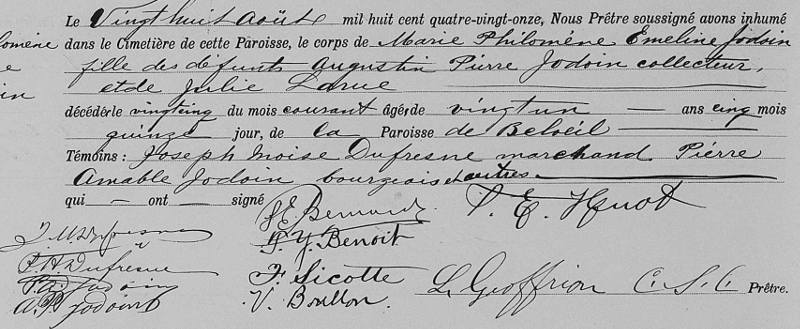 Le Vingt huit Août mil huit cent quatre-vingt-onze, Nous Prêtre soussigné avons inhumé
dans le Cimetière de cette Paroisse, le corps de Marie Philomène Emeline Jodoin
fille des défunts Augustin Pierre Jodoin collecteur,
et de Julie Larue
décédée le vingt cinq du mois courant âgée de vingt un ans cinq mois
quinze jour, de la Paroisse de Beloeil
Témoins : Joseph Moïse Dufresne marchand Pierre
Amable Jodoin bourgeois et autres
qui — ont — signé
J. E. Bernard P. E. Huot
J. M. Dufresne P. Y. Benoit
P. H. Dufresne F. Sicotte
P. A. Jodoin L. Geoffrion C. S. C. Prêtre.
A. P. Jodoin V. Boullon